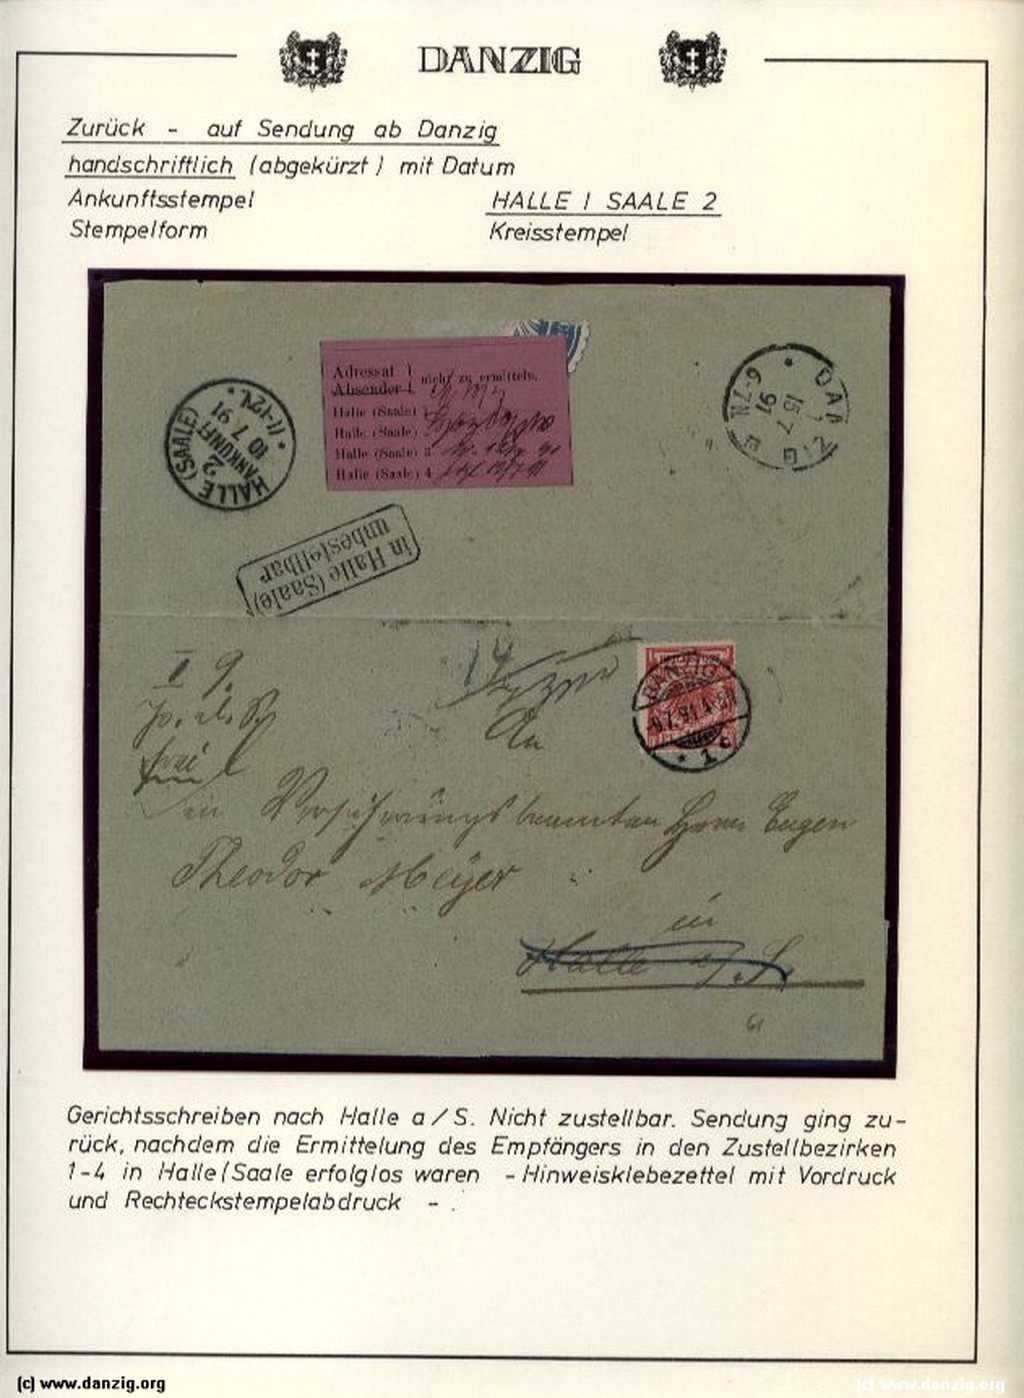 DANZIG
Zurück - auf Sendung ab Danzig
handschriftlich (abgekürzt) mit Datum
Ankunftsstempel HALLE / SAALE 2
Stempelform Kreisstempel
HALLE (SAALE)
2
ANKUNFT
10 7 91
11-12V.
Adressat
Absender
nicht zu ermitteln.
Halle (Saale) 1
Halle (Saale) 2
Halle (Saale) 3
Halle (Saale) 4
DANZIG
15 7
91
6-7N
in Halle (Saale)
unbestellbar
DANZIG
9.7.91.
1 c
An
Herrn Eugen
Theodor Meyer
in
Halle a/S.
61
Gerichtsschreiben nach Halle a/S. Nicht zustellbar. Sendung ging zu-
rück, nachdem die Ermittelung des Empfängers in den Zustellbezirken
1-4 in Halle/Saale erfolglos waren - Hinweisklebezettel mit Vordruck
und Rechteckstempelabdruck - .
(c) www.danzig.org
(c) www.danzig.org